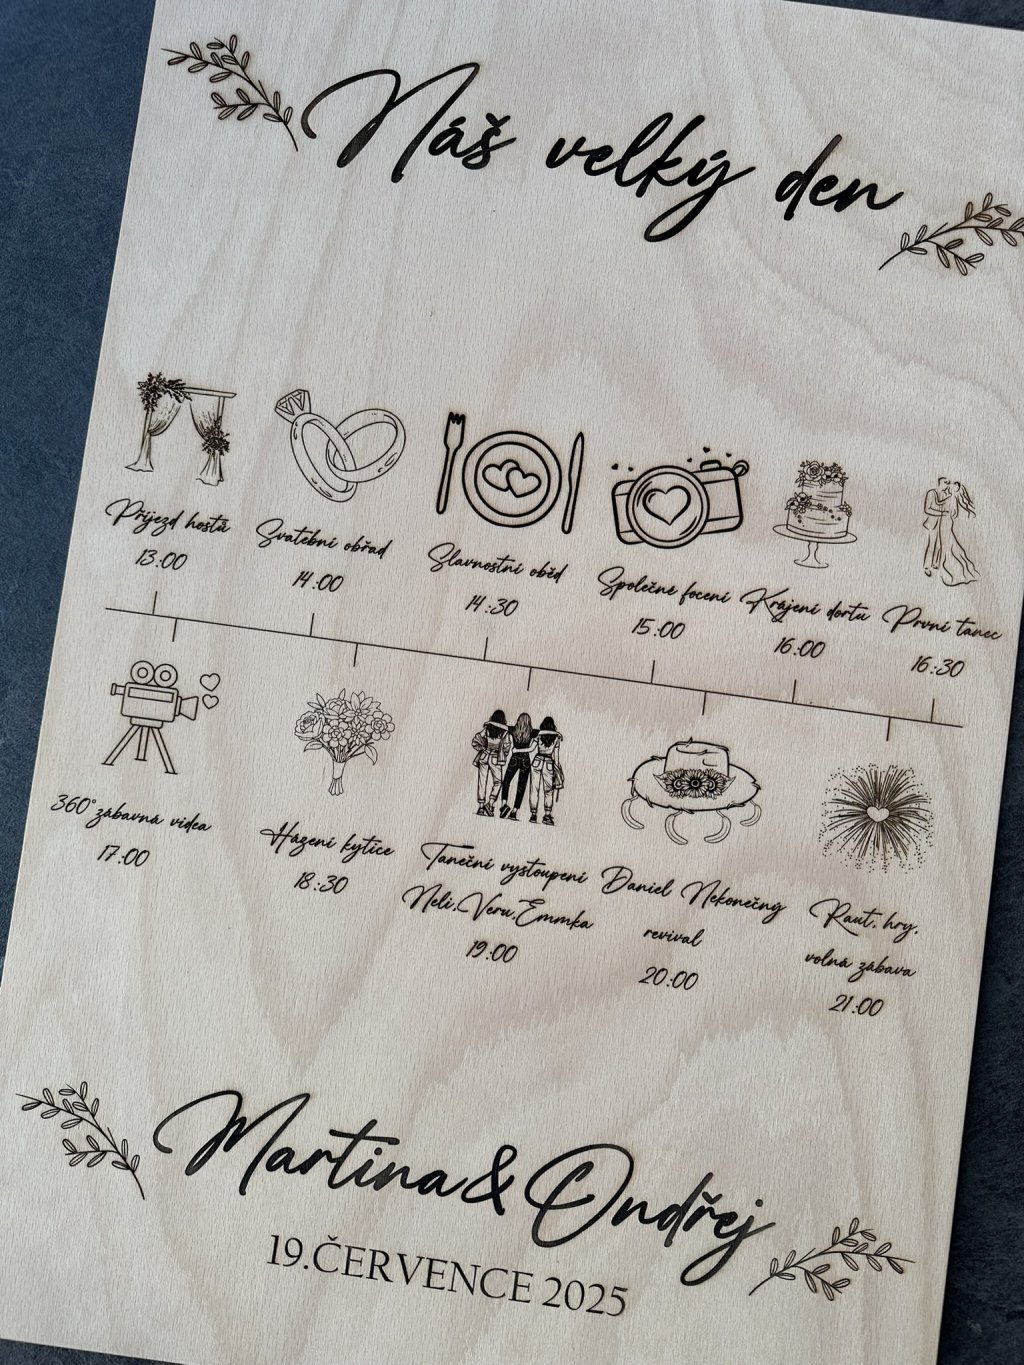 Náš velký den
Příjezd hostů
13:00
Svatební obřad
14:00
Slavnostní oběd
14:30
Společné focení
15:00
Krájení dortu
16:00
První tanec
16:30
360° zábavná videa
17:00
Házení kytice
18:30
Taneční vystoupení
Neli,Veru,Emmka
19:00
Daniel Nekonečný
revival
20:00
Raut, hry,
volná zábava
21:00
Martina&Ondřej
19.ČERVENCE 2025